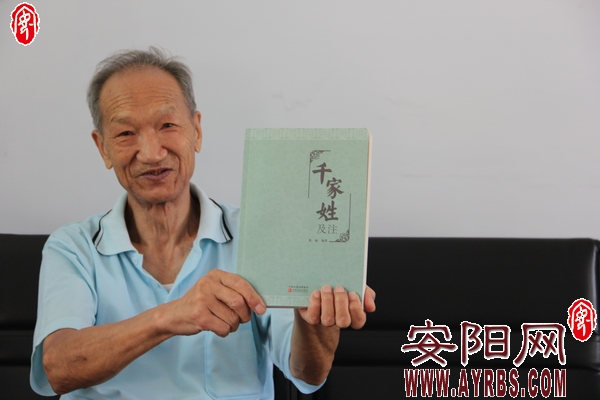 千家姓
及注
安阳网
WWW.AYRBS.COM